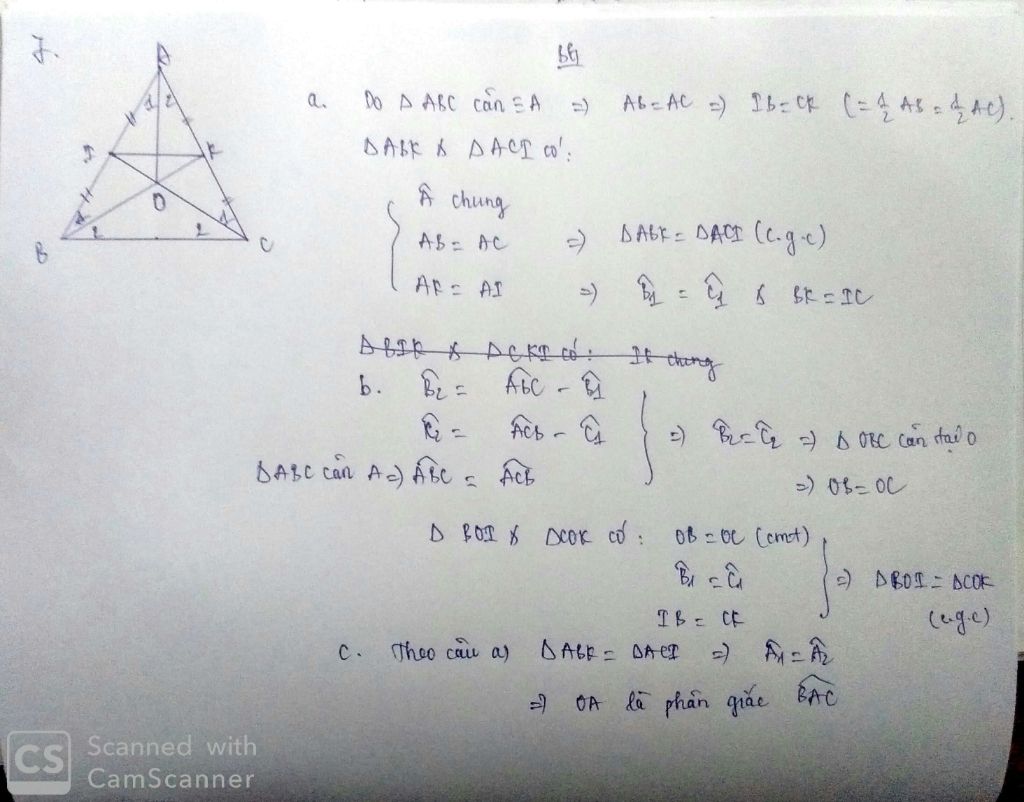 7.
BG
A
1 2
I
K
O
1
1
2
2
B
C
a. Do Δ ABC cân ≡ A => AB = AC => IB = CK (= 1/2 AB = 1/2 AC).
Δ ABK & Δ ACI có:
Â chung
AB = AC => Δ ABK = Δ ACI (c.g.c)
AK = AI => B̂1 = Ĉ1 & BK = IC
Δ BIK & Δ CKI có: IK chung
b. B̂2 = ABC - B̂1
Ĉ2 = ACB - Ĉ1 => B̂2 = Ĉ2 => Δ OBC cân tại O
Δ ABC cân A => ABC = ACB
=> OB = OC
Δ BOI & Δ COK có: OB = OC (cmt)
B̂1 = Ĉ1 => Δ BOI = Δ COK
IB = CK (c.g.c)
c. Theo câu a) Δ ABK = Δ ACI => Â1 = Â2
=> OA là phân giác BAC
CS Scanned with
CamScanner